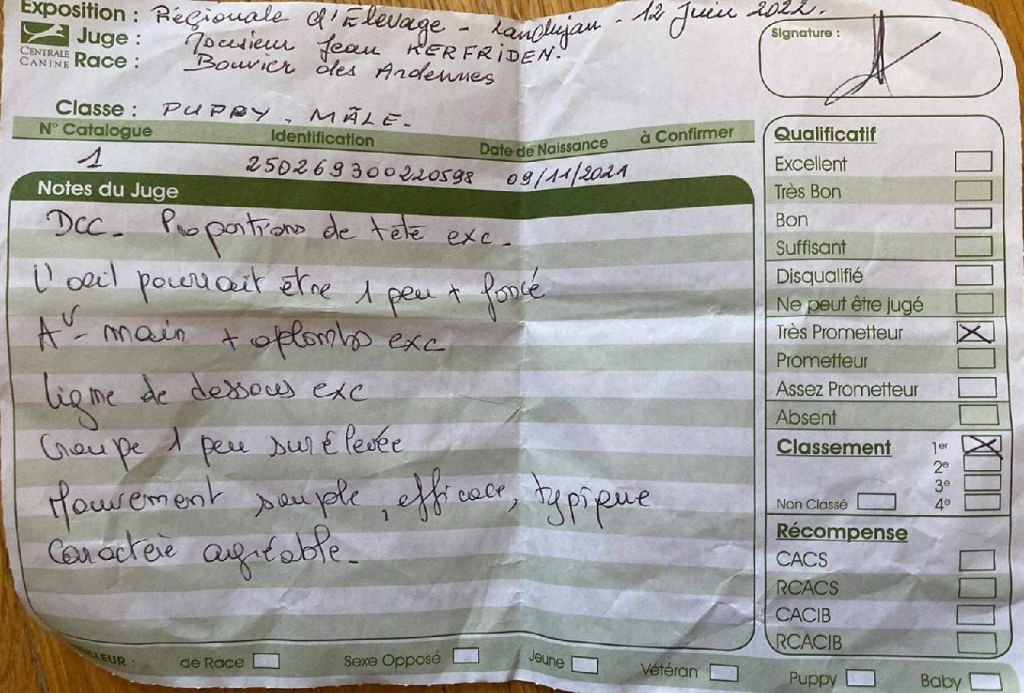 Exposition : Régionale d'Elevage - Landujan - 12 Juin 2022.
Juge : Monsieur Jean KERFRIDEN.
CENTRALE CANINE
Race : Bouvier des Ardennes
Signature :
Classe : PUPPY - MÂLE -
N° Catalogue Identification Date de Naissance à Confirmer
1 250269300220598 09/11/2021
Notes du Juge
DCC - Proportions de tête exc -
L'oeil pourrait être 1 peu + foncé
Av - main + aplombs exc
Ligne de dessous exc
Croupe 1 peu surélevée
Mouvement souple, efficace, typique
Caractère agréable -
Qualificatif
Excellent
Très Bon
Bon
Suffisant
Disqualifié
Ne peut être jugé
Très Prometteur X
Prometteur
Assez Prometteur
Absent
Classement 1er X
2e
3e
Non Classé 4e
Récompense
CACS
RCACS
CACIB
RCACIB
de Race Sexe Opposé Jeune Vétéran Puppy Baby